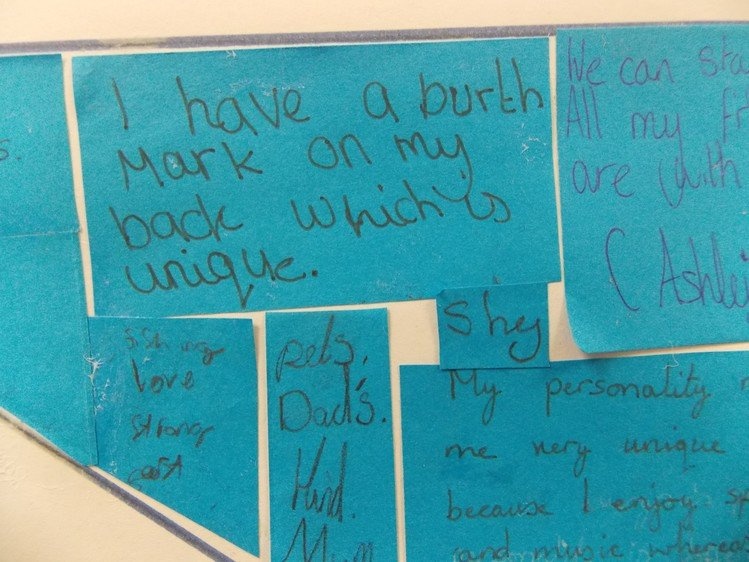 I have a burth
Mark on my
back which is
unique.
We can sta
All my fr
are with
(Ashlei
shy
love
strong
pets.
Dad's.
Kind.
My personality
me very unique
because I enjoy sp
and music whereas